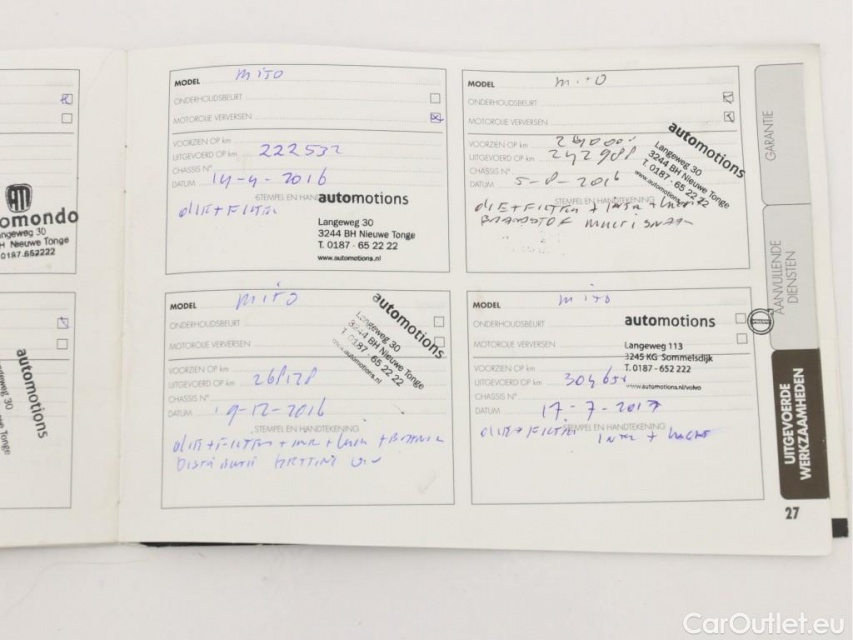 omondo
Langeweg 30
H Nieuwe Tonge
0187.652222
automotions
MODEL MITO
ONDERHOUDSBEURT
MOTOROLIE VERVERSEN
VOORZIEN OP km
UITGEVOERD OP km 222532
CHASSIS N°
DATUM 14-4-2016
STEMPEL EN HAND
automotions
OLIE+FILTER
Langeweg 30
3244 BH Nieuwe Tonge
T. 0187 - 65 22 22
www.automotions.nl
MODEL MITO
ONDERHOUDSBEURT
MOTOROLIE VERVERSEN
VOORZIEN OP km
UITGEVOERD OP km 242988
CHASSIS N°
DATUM 5-8-2016
STEMPEL EN HANDTEKENING
automotions
Langeweg 30
3244 BH Nieuwe Tonge
T. 0187 - 65 22 22
www.automotions.nl
OLIE+FILTER +
BRANDSTOF MULTISNAAR
MODEL MITO
ONDERHOUDSBEURT
MOTOROLIE VERVERSEN
VOORZIEN OP km
UITGEVOERD OP km 268128
CHASSIS N°
DATUM 19-12-2016
STEMPEL EN HANDTEKENING
automotions
Langeweg 30
3244 BH Nieuwe Tonge
T. 0187 - 65 22 22
www.automotions.nl
OLIE+FILTER+
MODEL MITO
ONDERHOUDSBEURT
MOTOROLIE VERVERSEN
VOORZIEN OP km
UITGEVOERD OP km
CHASSIS N°
DATUM 17-7-2017
STEMPEL EN HANDTEKENING
automotions
Langeweg 113
3245 KG Sommelsdijk
T. 0187 - 652 222
www.automotions.nl/volvo
OLIE+FILTER INTER + LUCHT
GARANTIE
AANVULLENDE
DIENSTEN
UITGEVOERDE
WERKZAAMHEDEN
27
CarOutlet.eu